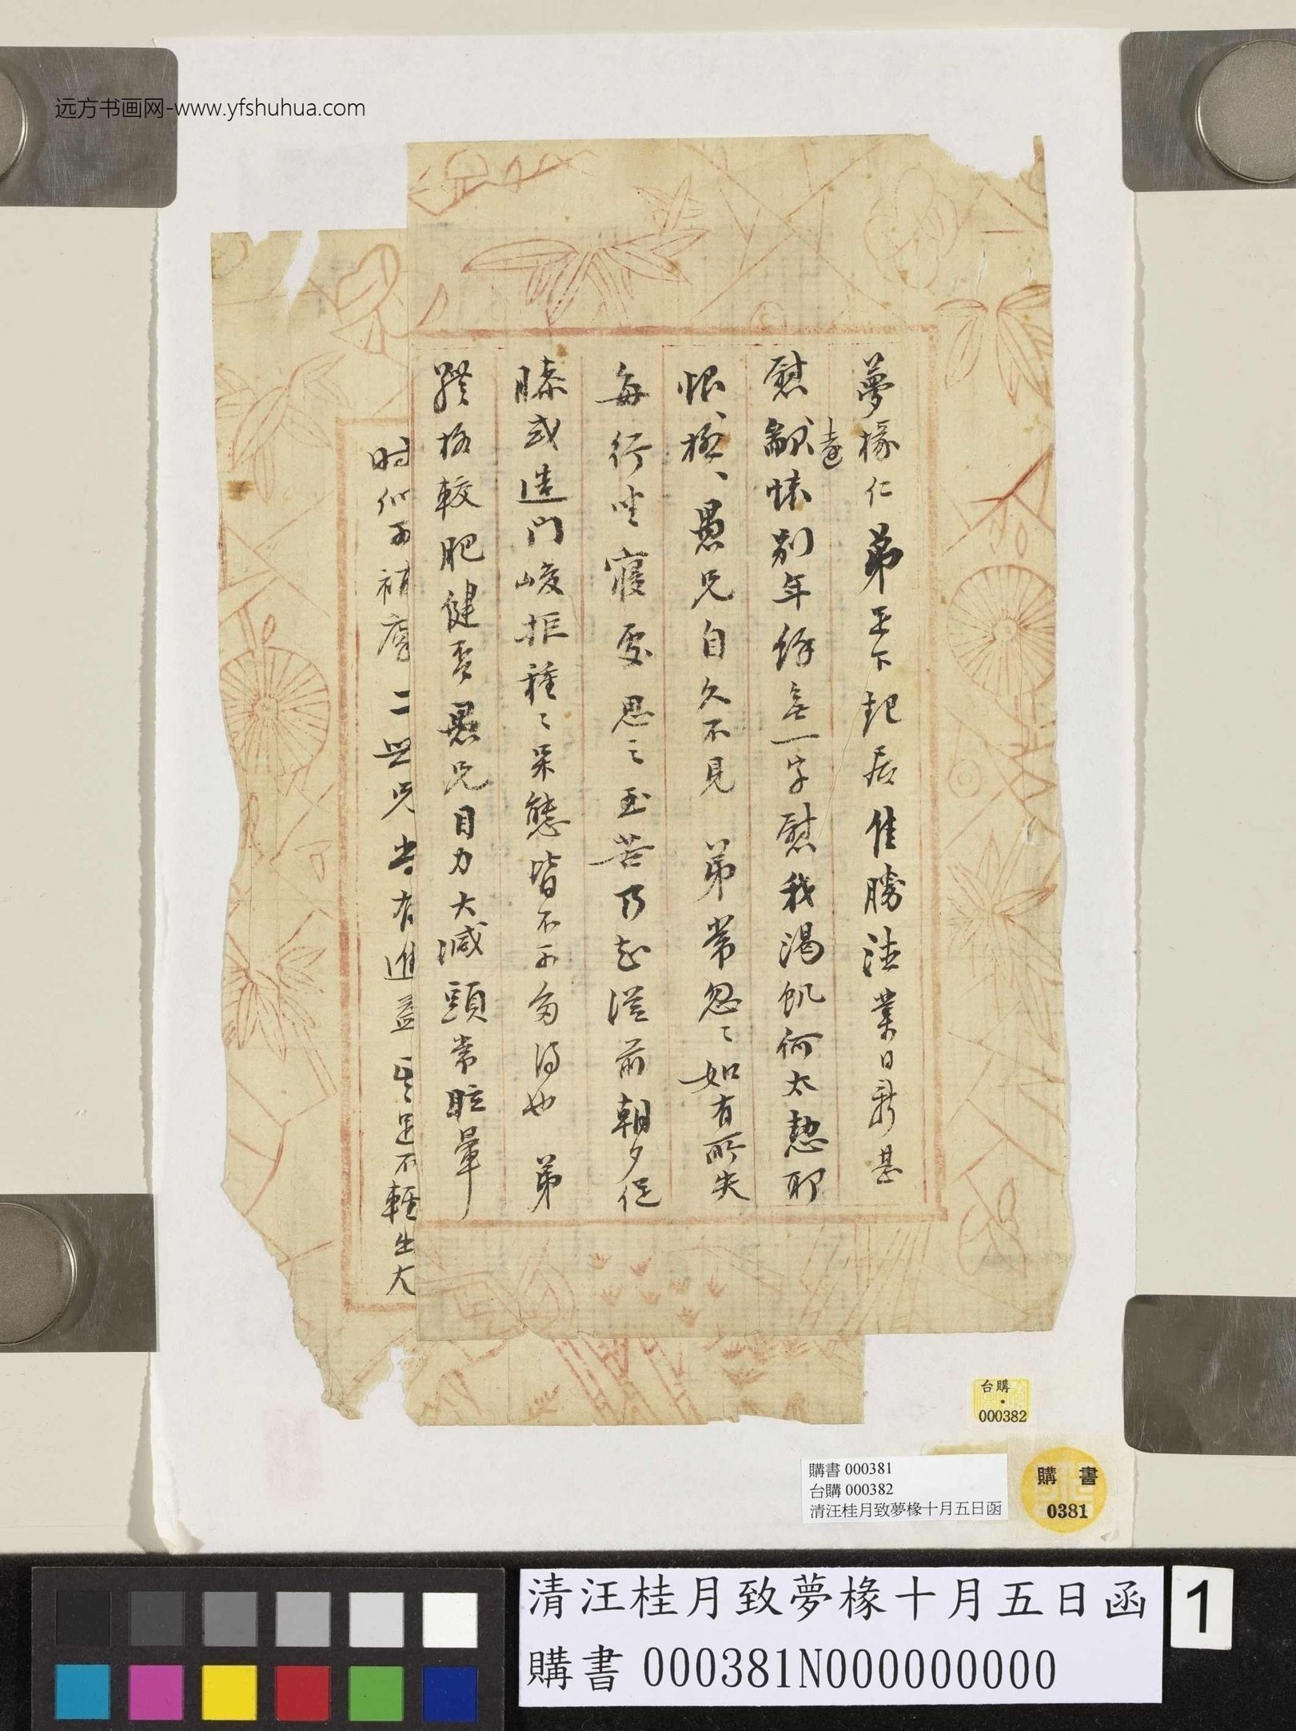 远方书画网-www.yfshuhua.com
夢椽仁弟足下起居佳勝德業日新甚
慰遠懷別年餘無一字慰我渴飢何太慭耶
恨、極、愚兄自久不見 弟常忽〻如有所失
每行坐寢處思之至苦乃知從前朝夕促
膝或造門峻拒種〻呆態皆不可多得也 弟
體格較肥健否愚兄目力大減頭常眩暈
時作 二 兄尚有進益 足不輕出大
台購
000382
購書 000381
台購 000382
清汪桂月致夢椽十月五日函
購 書
0381
清汪桂月致夢椽十月五日函
購書 000381N000000000
1